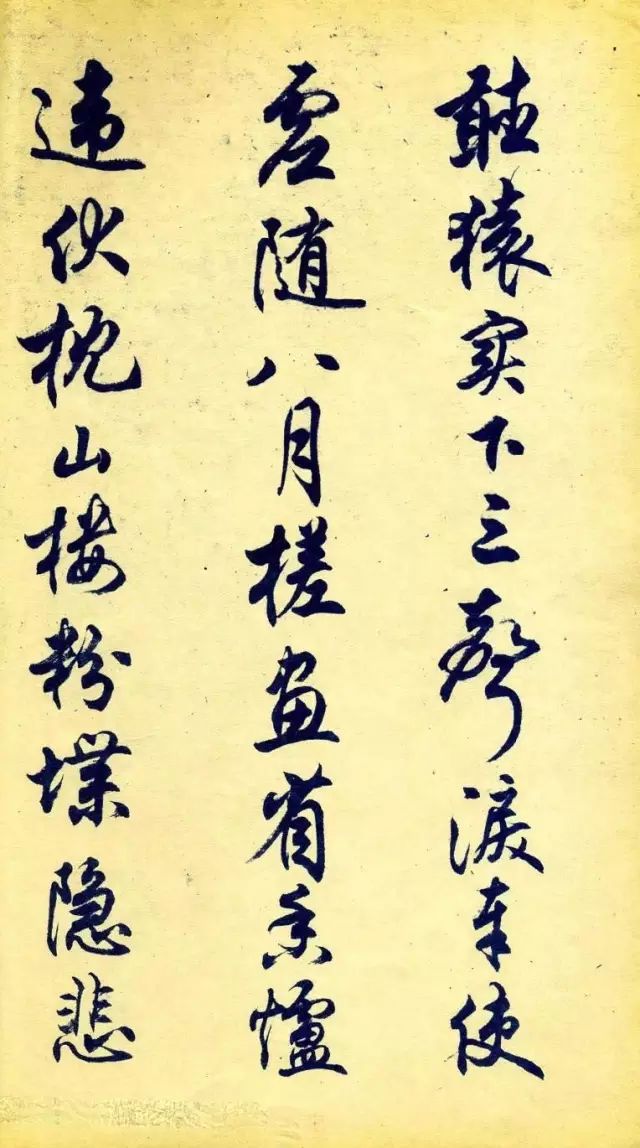 聽猿實下三聲淚奉使
虛隨八月槎畫省香爐
違伏枕山樓粉堞隱悲